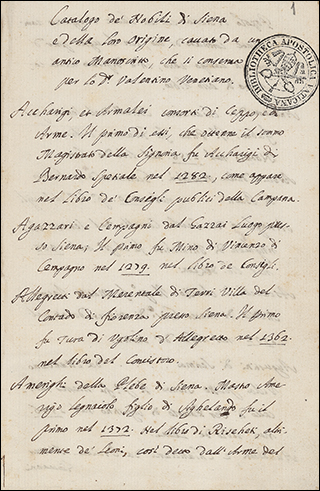 1
Catalogo de' Nobili di Siena
e della loro Origine, cavato da un
antico Manoscritto, che si conserva
per lo Sr. Valentino Veneziano.
BIBLIOTHECA APOSTOLICA VATICANA
Accharigi et Armalei consorti di Ceppo, et
Arme. Il primo di essi, che ottenne il sommo
Magistrato della Signoria fu Accharigi di
Bernardo Speziale nel 1282, come appare
nel Libro de' Consigli publici della Campana.
Agazzari e Compagni dal Gazzai Luogo pres-
so Siena, Il primo fu Mino di Vinanzo di
Compagno nel 1279. nel libro de Consigli.
Allegretti dal di Terri Villa del
Contado di presso Siena. Il primo
fu Tura di Ugolino d'Allegretto nel 1362.
nel libro del Concistoro.
Amerighi della Plebe di Siena. Mastro Ame-
rigo figlio di fu il
primo nel 1372. Nel libro di
de' Leoni, così detto dall'Arme del